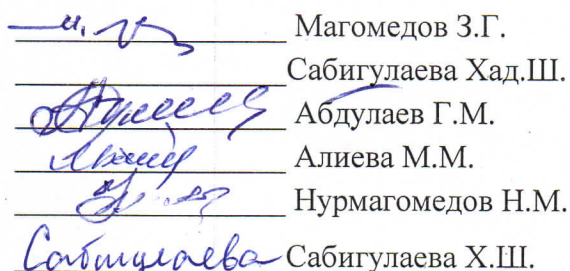 Магомедов З.Г.
Сабигулаева Хад.Ш.
Абдулаев Г.М.
Алиева М.М.
Нурмагомедов Н.М.
Сабигулаева Сабигулаева Х.Ш.